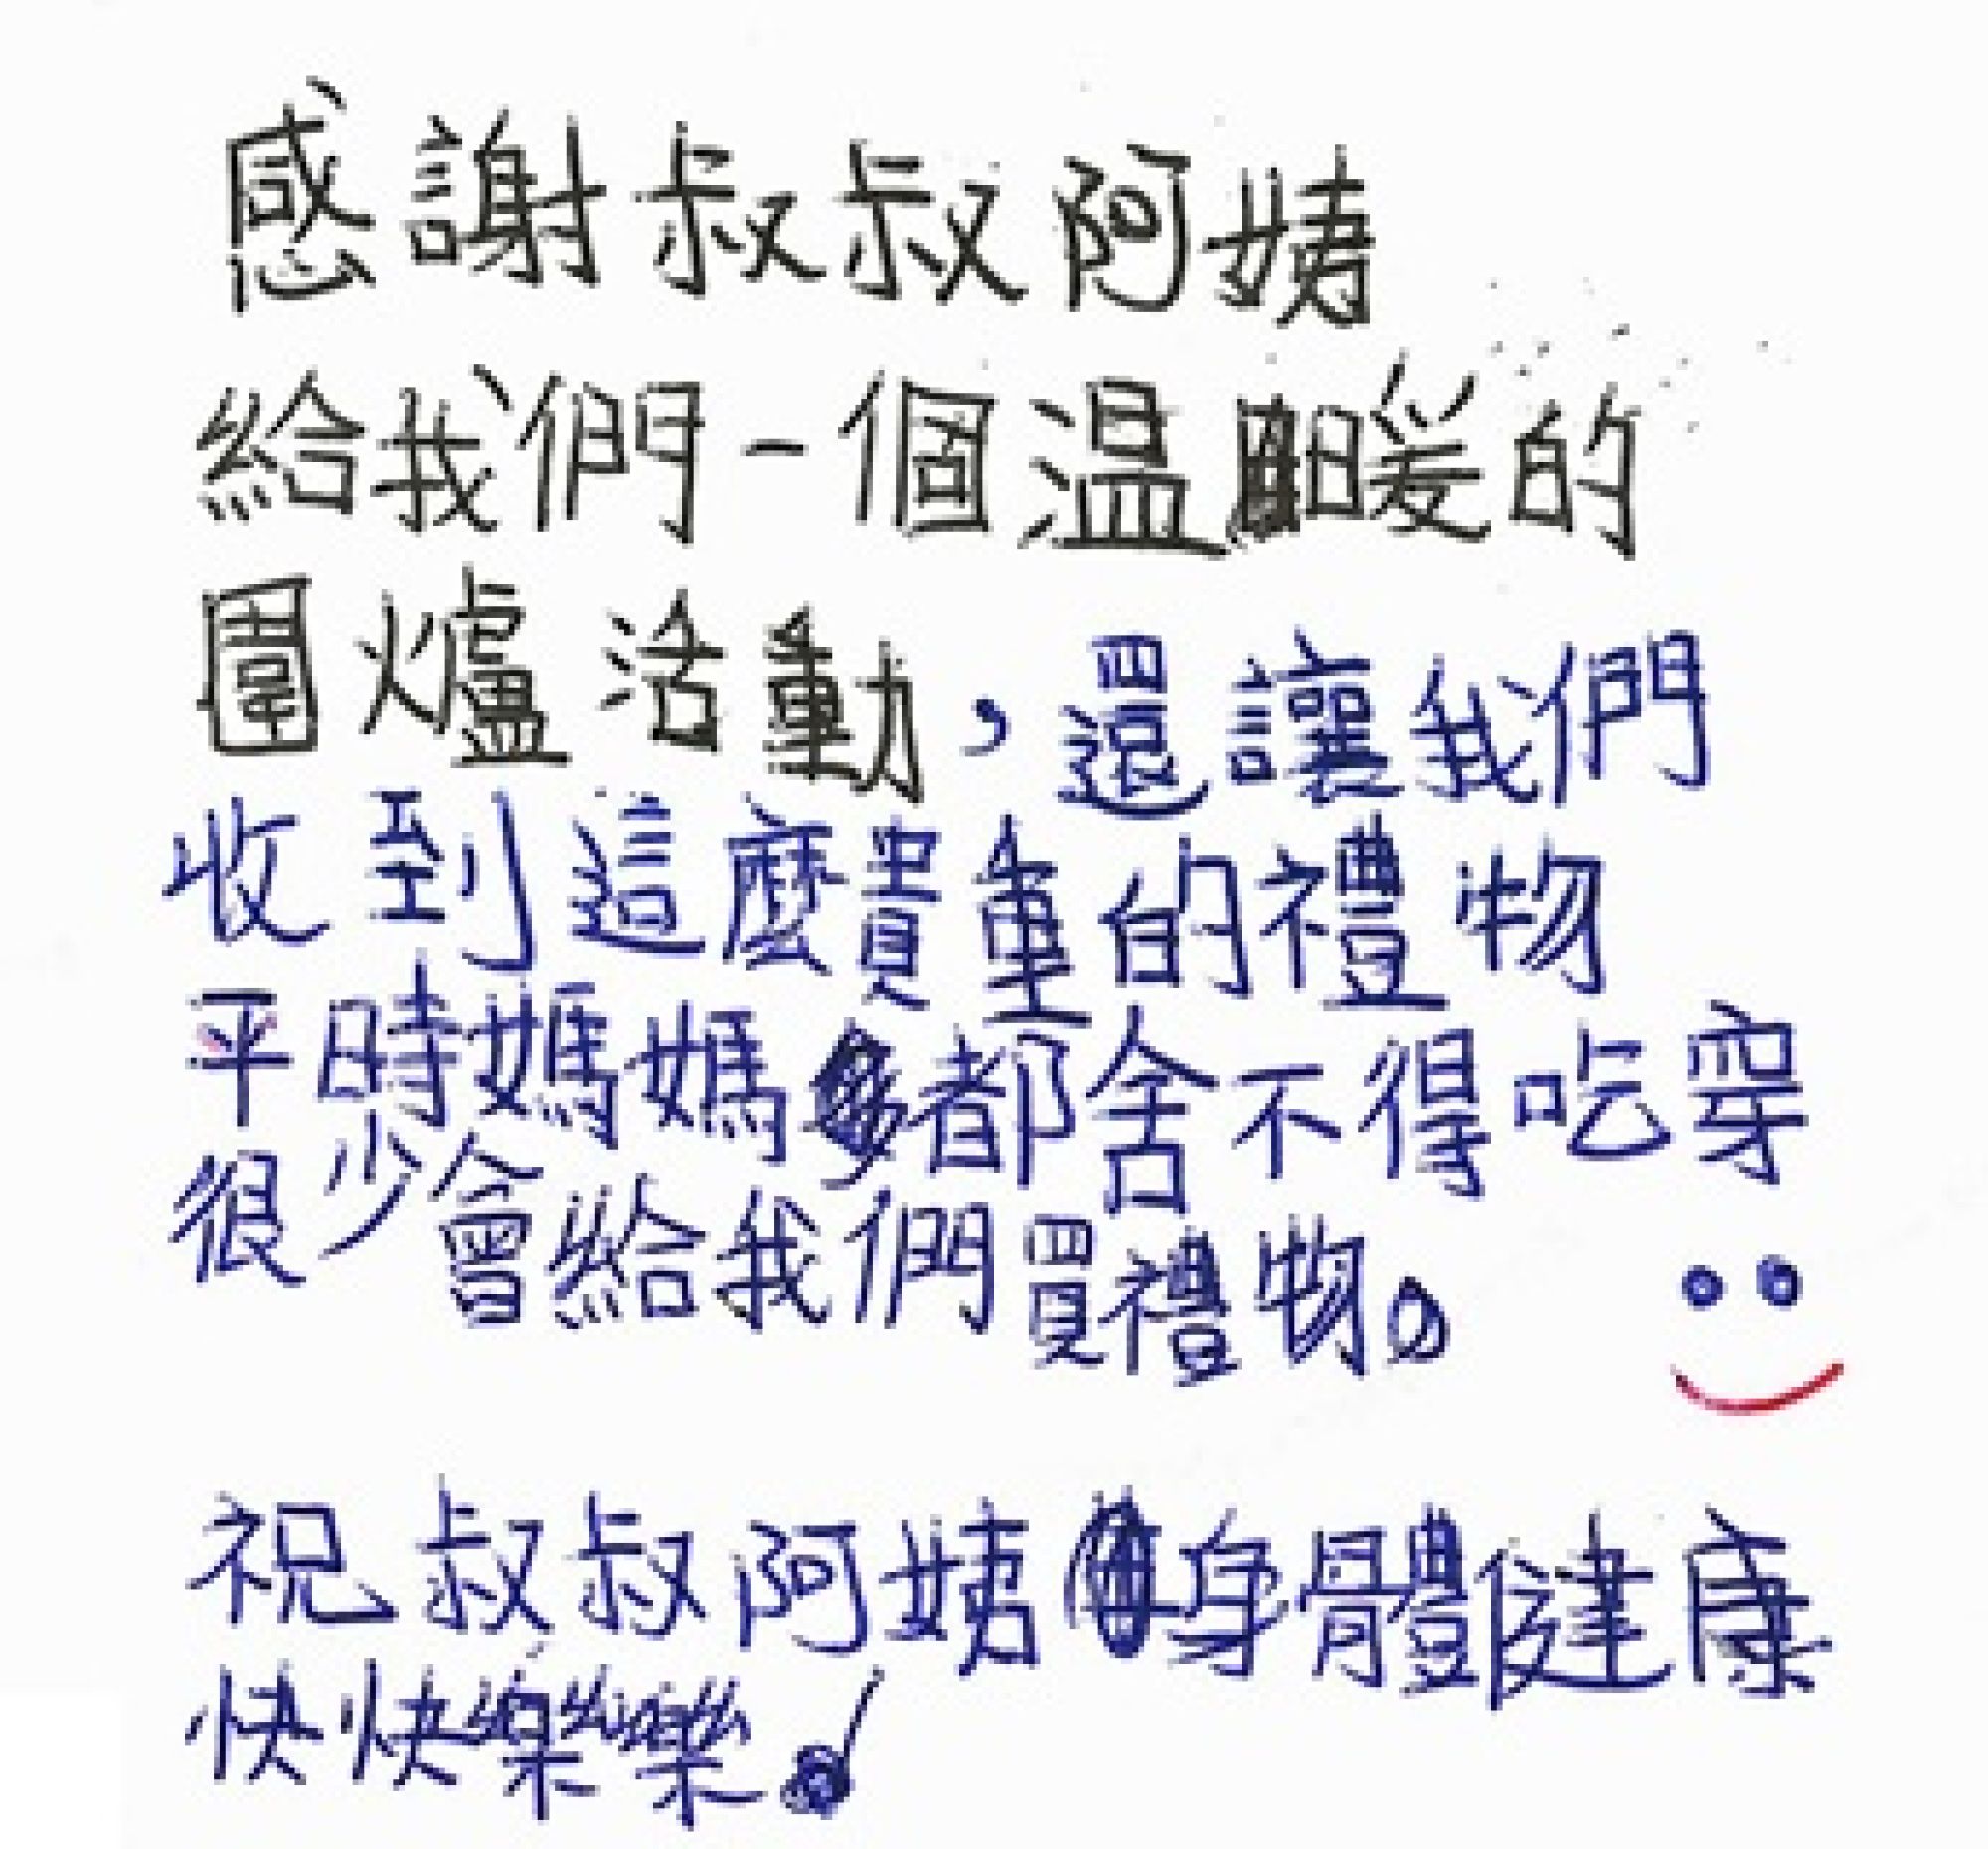 感謝叔叔阿姨
給我們一個溫暖的
圍爐活動，還讓我們
收到這麼貴重的禮物
平時媽媽都舍不得吃穿
很少會給我們買禮物。
祝叔叔阿姨身體健康
快快樂樂！